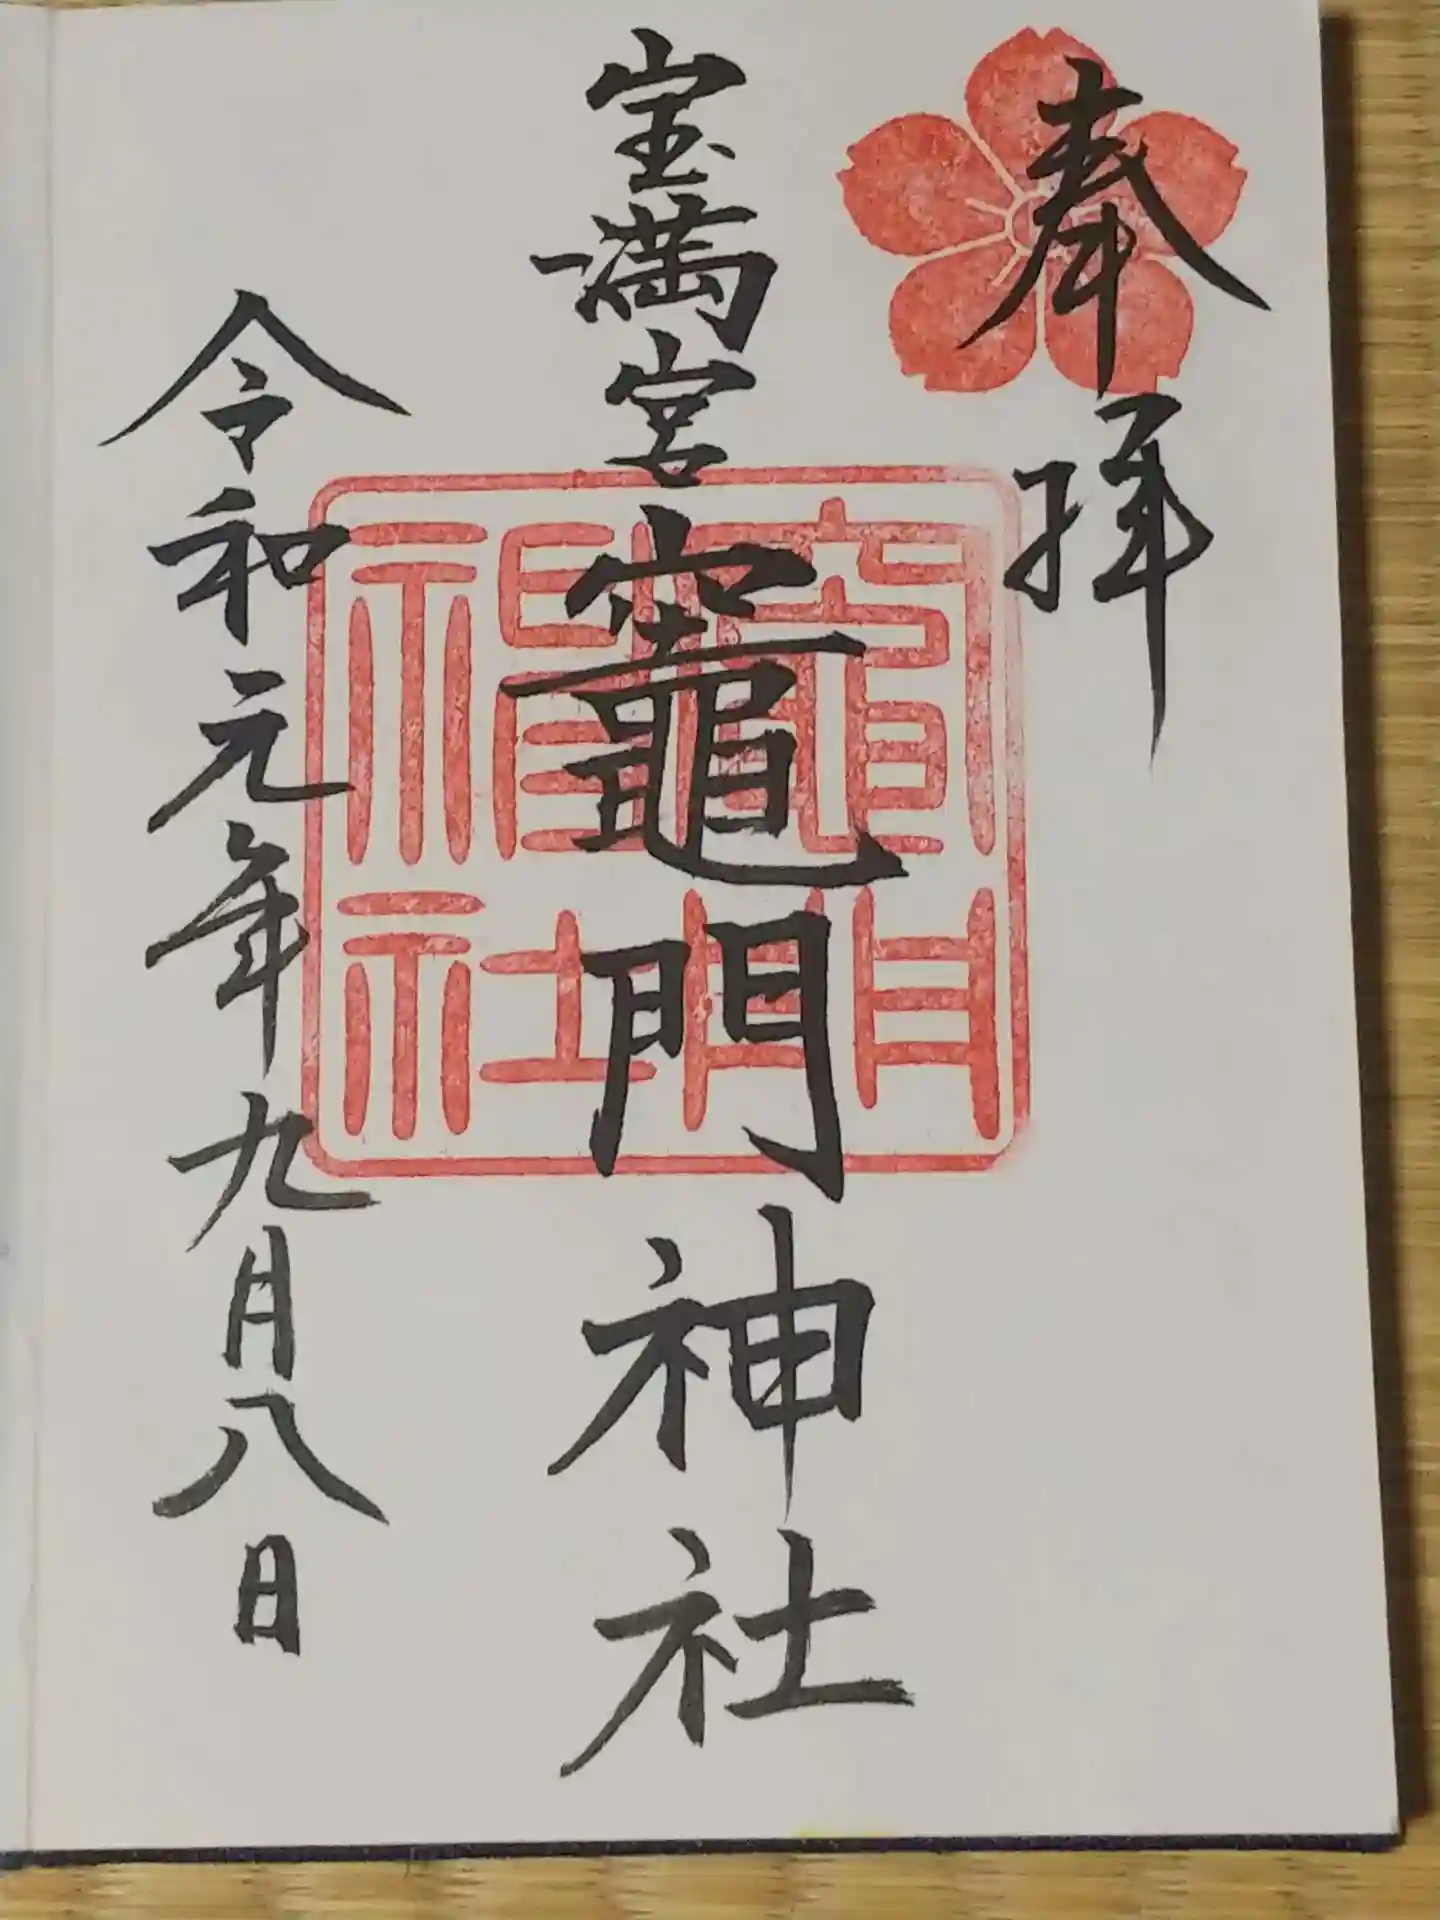 奉拝
宝満宮竈門神社
令和元年九月八日
竈門
神社